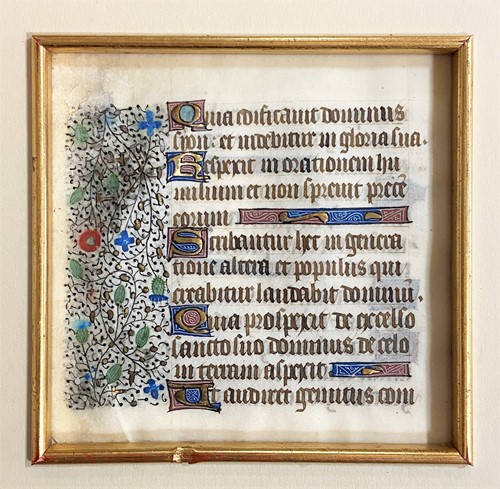 Quia edificavit dominus
syon: et videbitur in gloria sua.
Respexit in orationem hu
milium et non sprevit precē
eorum
Scribantur hec in genera
tione altera et populus qui
creabitur laudabit dominū.
Quia prospexit de excelso
sancto suo dominus de celo
in terram aspexit
Ut audiret gemitus com